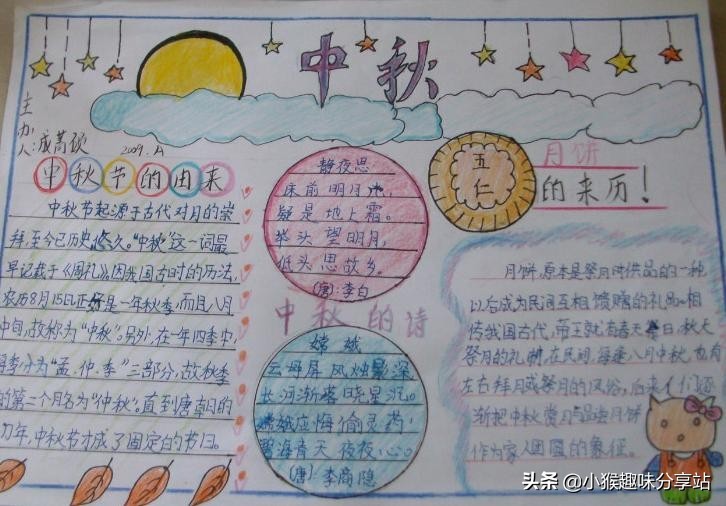 中秋
主办人:成蒿硕
2009.
中秋节的由来
中秋节起源于古代对月的崇
拜,至今已历史悠久。“中秋”这一词最
早记载于《周礼》。因我国古时的历法,
农历8月15日正好是一年秋季,而且八月
中旬,故称为“中秋”。另外,在一年四季中,
每季分为“孟、仲、季”三部分,故秋季
的第二个月名为“仲秋”。直到唐朝的
初年,中秋节才成了固定的节日。
静夜思
床前明月光
疑是地上霜。
举头望明月,
低头思故乡。
(唐):李白
中秋的诗
嫦娥
云母屏风烛影深
长河渐落晓星沉。
嫦娥应悔偷灵药,
碧海青天夜夜心。
(唐):李商隐
五仁
月饼
的来历!
月饼,原本是祭月时供品的一种
以后成为民间互相馈赠的礼品。相
传我国古代,帝王就有春天祭日,秋天
祭月的礼制,在民间,每逢八月中秋,也有
左右拜月或祭月的风俗,后来人们逐
渐把中秋赏月与品尝月饼
作为家人团圆的象征。
头条 @小猴趣味分享站